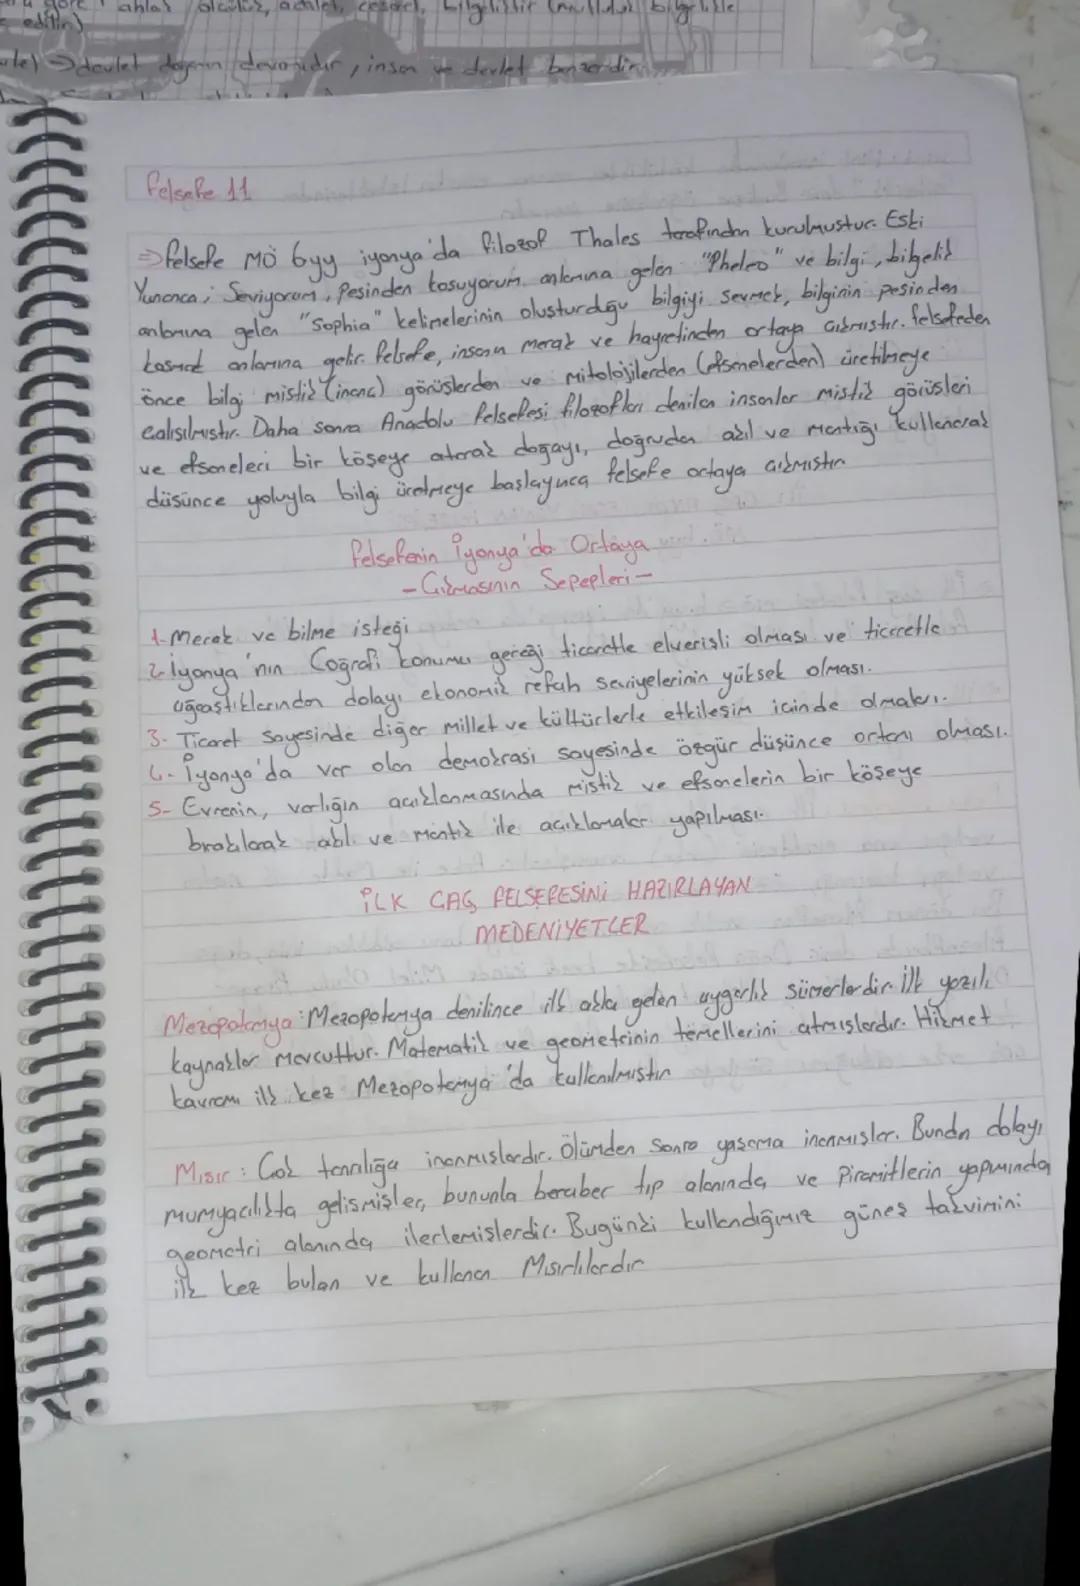 ahlak ölçülük, adalet, cesaret, bilgeliktir
devlet doğanın devamıdır, insan ve devlet benzerdir
Felsefe 11
⇒ felsefe MÖ 6yy iyonya'da filozof Thales tarafından kurulmuştur. Eski
Yunanca; Seviyorum, Peşinden koşuyorum. anlamına gelen "Pheleo" ve bilgi, bilgelik
anlamına gelen "Sophia" kelimelerinin oluşturduğu bilgiyi sevmek, bilginin peşinden
koşmak anlamına gelir. felsefe, insanın merak ve hayretinden ortaya çıkmıştır. felsefeden
önce bilgi mistik (inanç) görüşlerden ve mitolojilerden (efsanelerden) üretilmeye
çalışılmıştır. Daha sonra Anadolu felsefesi filozofları denilen insanlar mistik görüşleri
ve efsaneleri bir köşeye atarak doğayı, doğrudan akıl ve mantığı kullanarak
düşünce yoluyla bilgi üretmeye başlayınca felsefe ortaya çıkmıştır
felsefenin İyonya'da Ortaya
- Çıkmasının Sepepleri -
1- Merak ve bilme isteği
2- İyonya'nın Coğrafi konumu gereği ticaretle elverişli olması ve ticaretle
uğraştıklarından dolayı ekonomik refah seviyelerinin yüksek olması.
3- Ticaret sayesinde diğer millet ve kültürlerle etkileşim içinde olmaları.
4- İyonya'da var olan demokrasi sayesinde özgür düşünce ortamı olması.
5- Evrenin, varlığın açıklanmasında mistik ve efsanelerin bir köşeye
bırakılarak akıl ve mantık ile açıklamalar yapılması.
İLK ÇAĞ FELSEFESİNİ HAZIRLAYAN
MEDENİYETLER
Mezopotamya: Mezopotamya denilince ilk akla gelen uygarlık sümerlerdir. İlk yazılı
kaynaklar mevcuttur. Matematik ve geometrinin temellerini atmışlardır. Hikmet
kavramı ilk kez Mezopotamya'da kullanılmıştır
Mısır: Çok tanrılığa inanmışlardır. Ölümden sonra yaşama inanmışlar. Bundan dolayı
mumyacılıkta gelişmişler, bununla beraber tıp alanında ve Piramitlerin yapımında
geometri alanında ilerlemişlerdir. Bugünki kullandığımız güneş takvimini
ilk kez bulan ve kullanan Mısırlılardır